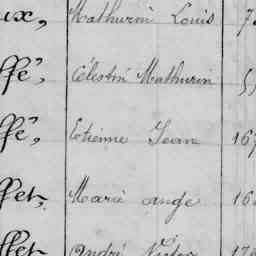 ux, Mathurin Louis 7
ffé, Célestin Mathurin 5
ffé, Etienne Jean 167
ffet, Marie ange 16
ffet André 17